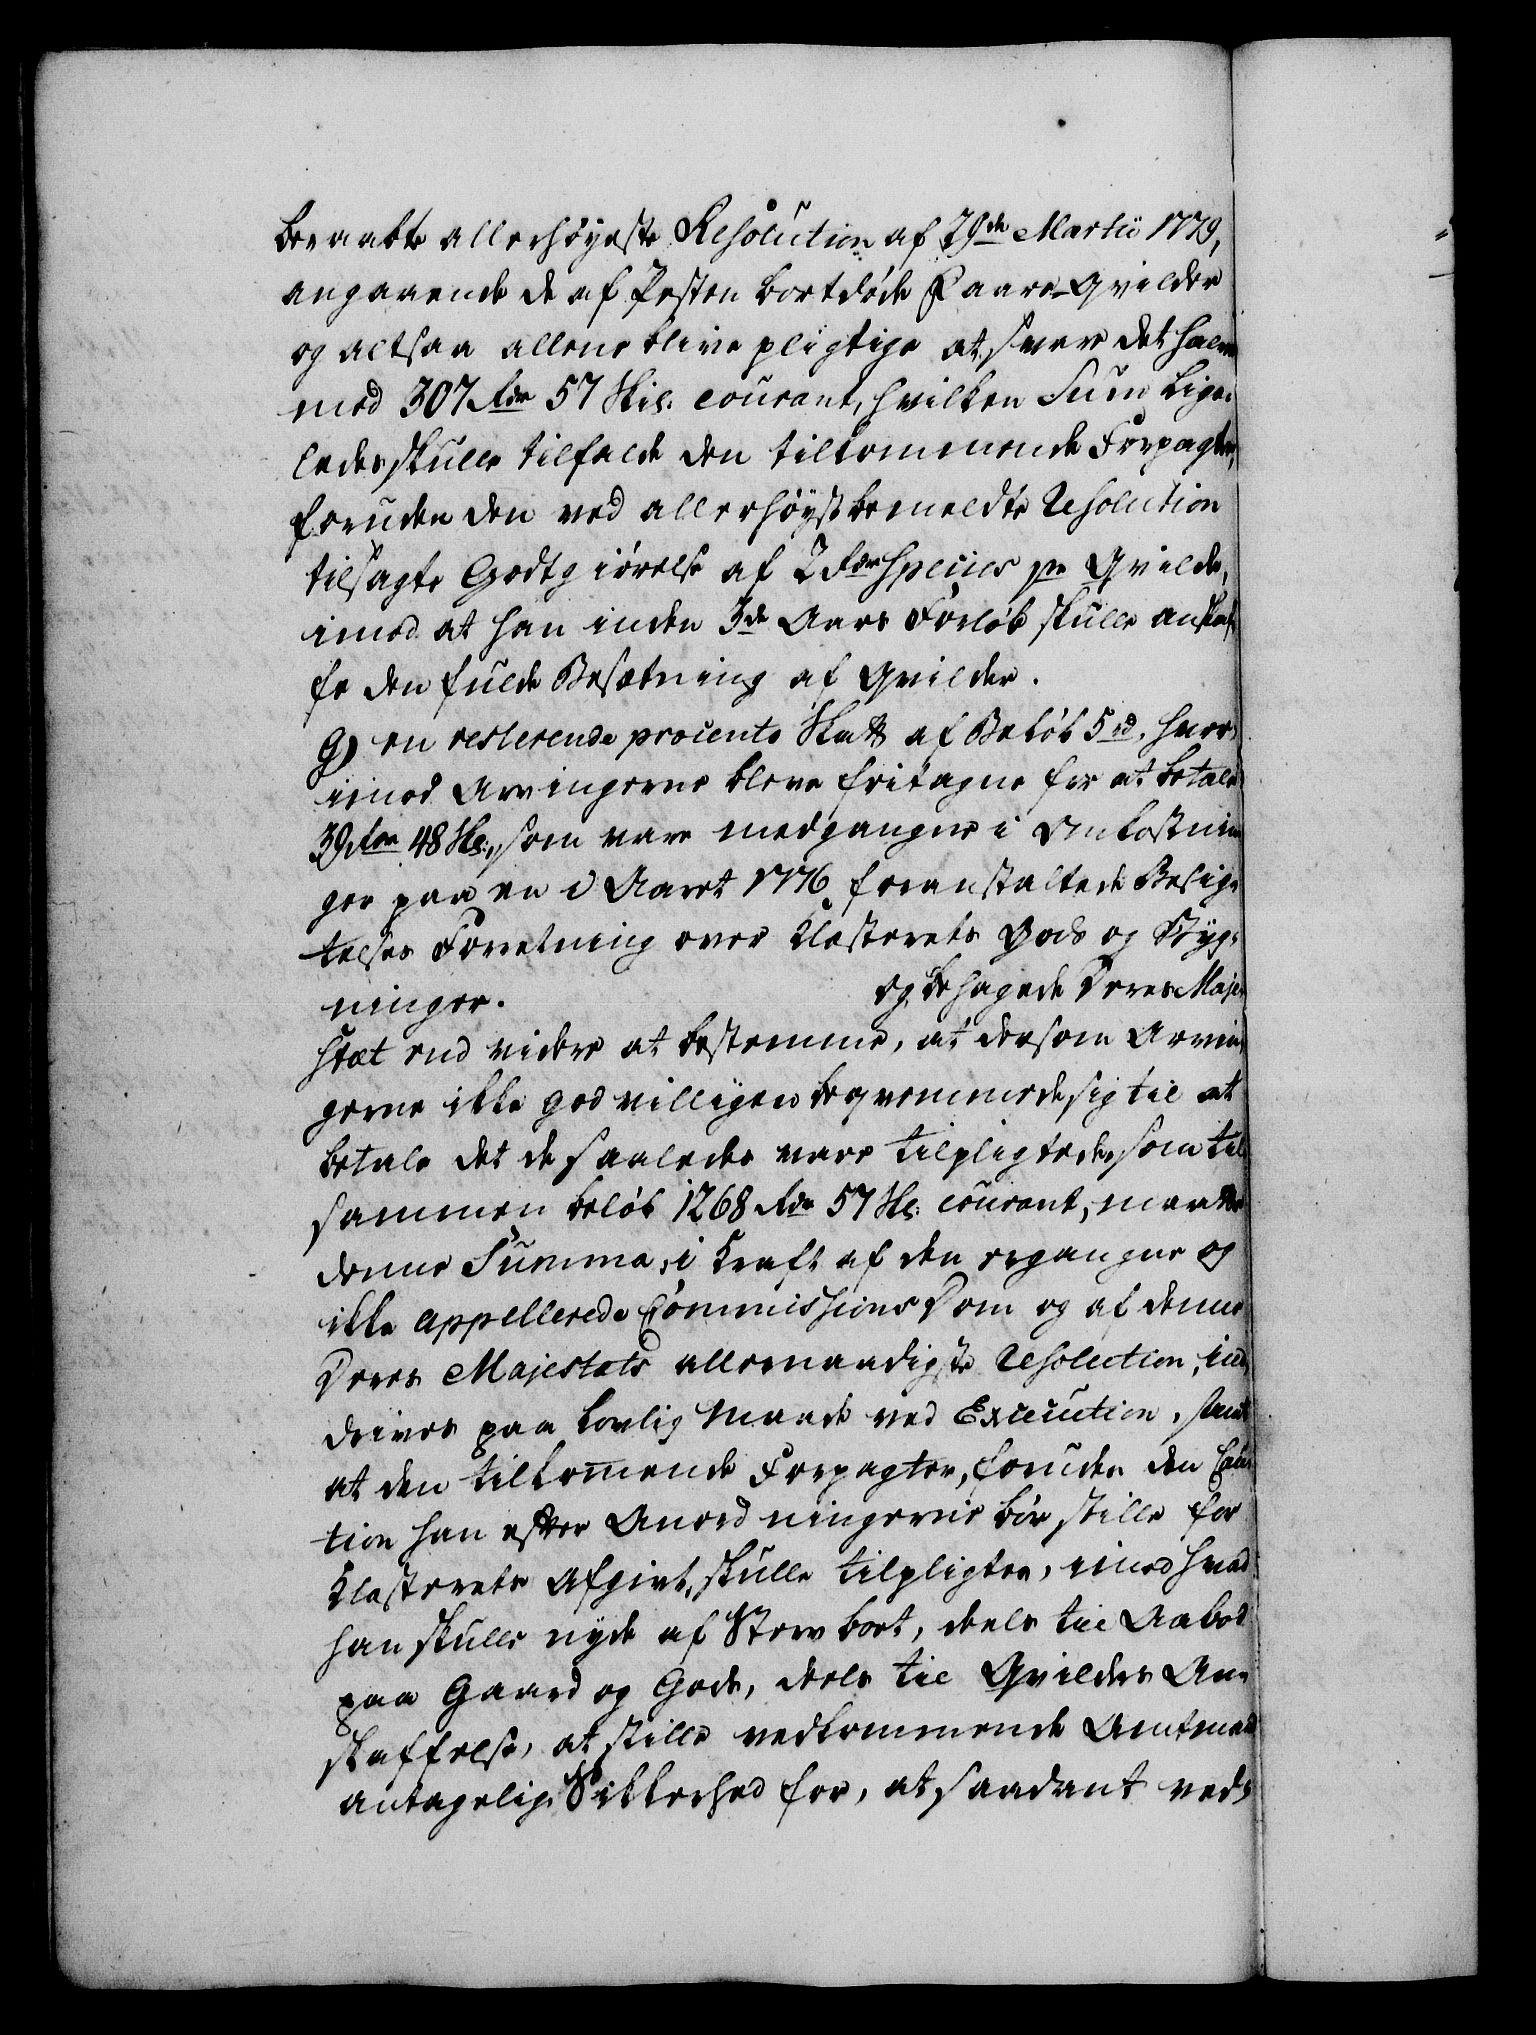 beraabte allerhøyeste Resolution af 29de Martii 1779,
angaaende de af Pesten bortdøde Faare-Qvilder
og altsaa allene blive pligtige at svare det halve
med 307 Rdr 57 Skil. courant, hvilken Sum lige-
ledes skulle tilfalde den tilkommende Forpagter,
foruden den ved allerhøystbemeldte Resolution
tilsagte Godtgiørelse af 2 rdr Species pr Qvilde,
imod at han inden 3de Aars Forløb skulle anskaf-
fe den fulde Besætning af Qvilder.
9) en resterende procento Skatt af Beløb 5 rd. hvor-
imod Arvingerne bleve fritagne for at betale
39 rdr 48 Sk:, som vare medgangne i Omkostnin-
ger paa en i Aaret 1776 foranstaltede Besig-
telses Forretning over Klosterets Gods og Byg-
ninger. og behagede Deres Maje-
stæt end videre at bestemme, at dersom Arvin-
gerne ikke godvilligen beqvemmede sig til at
betale det de saaledes vare tilpligtede, som til-
sammen beløb 1268 Rdr 57 Sk: courant, maatte
denne Summa, i Kraft af den ergangne og
ikke appellerede Commissions Dom og af denne
Deres Majestæts allernaadigste Resolution, ind-
drives paa lovlig Maade ved Execution, samt
at den tilkomende Forpagter, foruden den Cau-
tion han efter Anordningerne bør stille for
Klosterets Afgivt, skulle tilpligtes, imod hvad
han skulle nyde af Sterv boet, deels til Aabod
paa Gaard og Gods, deels til Qvilders An-
skaffelse, at stille vedkommende Amtmand
antagelig Sikkerhed for, at saadant ved-